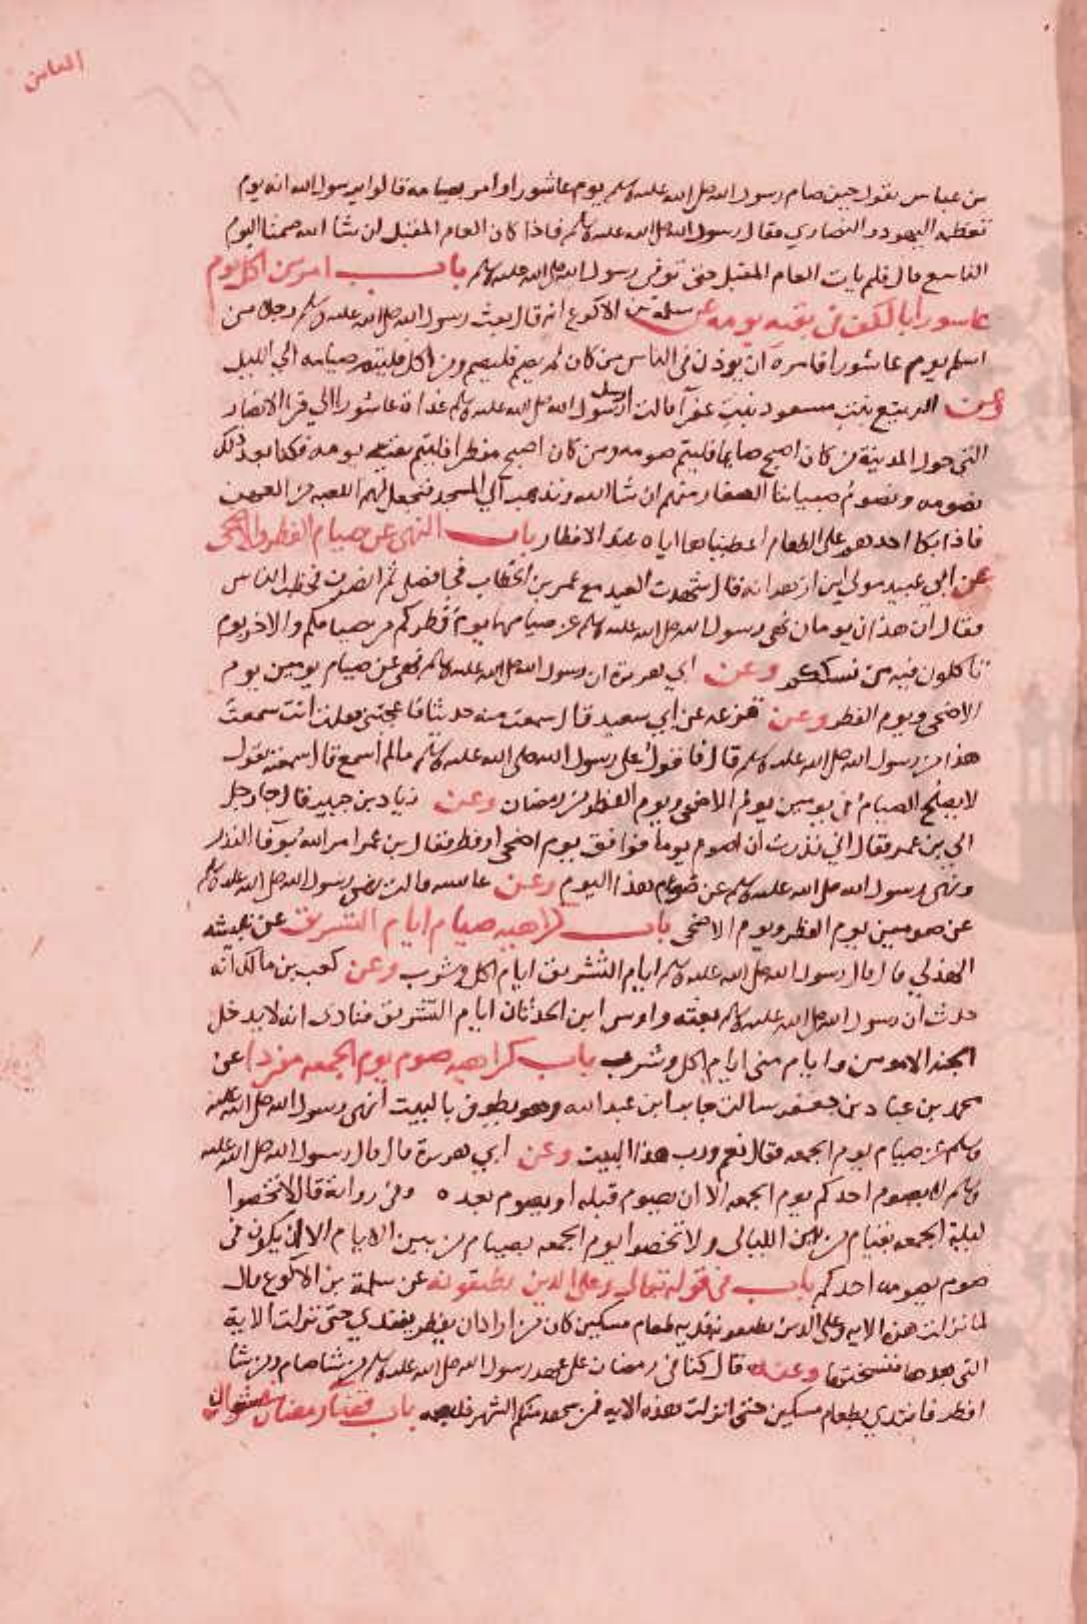 العاشر
٦٩
بن عباس يقول حين صام رسول الله صلى الله عليه وسلم يوم عاشورا وامر بصيامه قالوا يرسول الله انه يوم
تعظمه اليهود والنصاري فقال رسول الله صلى الله عليه وسلم فاذا كان العام المقبل ان شا الله صمنا اليوم
التاسع قال فلم يات العام المقبل حتى توفى رسول الله صلى الله عليه وسلم باب امر من اكل يوم
عاسورا بالكف فى بقيه يومه عن سلمة بن الاكوع انه قال بعث رسول الله صلى الله عليه وسلم رجلا من
اسلم يوم عاشورا فامره ان يوذن فى الناس من كان لم يصم فليصم ومن اكل فليتم صيامه الي الليل
وعن الربيع بنت مسعود بنت عفرآ قالت ارسل رسول الله صلى الله عليه وسلم غداة عاشورا الي قرا الانصار
التى حول المدينة من كان اصبح صايما فليتم صومه ومن كان اصبح مفطرا فليتم بقيه يومه فكنا بعد ذلك
نصومه ونصوم صبياننا الصغار منهم ان شا الله ونذهب الي المسجد فنجعل لهم اللعبه من العهن
فاذا بكا احدهم على الطعام اعطيناها اياه عند الافطار باب النهى عن صيام الفطر والاضحى
عن ابي عبيد مولي ابن ازهر انه قال شهدت العيد مع عمر بن الخطاب فجا فصلى ثم انصرف فخطب الناس
فقال ان هذان يومان نهى رسول الله صلى الله عليه وسلم عن صيامهما يوم فطركم من صيامكم والاخر يوم
تاكلون فيه من نسككم وعن ابي هريرة ان رسول الله صلى الله عليه وسلم نهى عن صيام يومين يوم
الاضحى ويوم الفطر وعن قزعه عن ابي سعيد قال سمعت منه حديثا فاعجبني فقلت انت سمعت
هذا من رسول الله صلى الله عليه وسلم قال فاقول على رسول الله صلى الله عليه وسلم مالم اسمع قال سمعته يقول
لا يصلح الصيام فى يومين يوم الاضحى ويوم الفطر من رمضان وعن زياد بن جبير قال جا رجل
الي بن عمر فقال اني نذرت ان اصوم يوما فوافق يوم اضحى او فطر فقال بن عمر امر الله بوفا النذر
ونهى رسول الله صلى الله عليه وسلم عن صوم هذا اليوم وعن عايشه قالت نهى رسول الله صلى الله عليه وسلم
عن صومين يوم الفطر ويوم الاضحى باب كراهيه صيام ايام التشريق عن نبيشه
الهذلي قال قال رسول الله صلى الله عليه وسلم ايام التشريق ايام اكل وشرب وعن كعب بن مالك انه
حدث ان رسول الله صلى الله عليه وسلم بعثه واوس ابن الحدثان ايام التشريق فنادى انه لا يدخل
الجنه الا مومن وايام منى ايام اكل وشرب باب كراهيه صوم يوم الجمعه مفردا عن
محمد بن عباد بن جعفر سالت جابر ابن عبد الله وهو يطوف بالبيت انهى رسول الله صلى الله عليه
وسلم عن صيام يوم الجمعه فقال نعم ورب هذا البيت وعن ابي هريرة قال قال رسول الله صلى الله عليه
وسلم لا يصوم احدكم يوم الجمعه الا ان يصوم قبله او يصوم بعده وفى رواية قال لا تخصوا
ليلة الجمعه بقيام من بين الليالى ولا تخصوا يوم الجمعه بصيام من بين الايام الا ان يكون فى
صوم يصومه احدكم باب فى قوله تعالى وعلى الذين يطيقونه عن سلمة بن الاكوع قال
لما نزلت هذه الايه وعلى الذين يطيقونه فديه طعام مسكين كان من اراد ان يفطر يفتدي حتى نزلت الاية
التى بعدها فنسختها وعنه قال كنا فى رمضان على عهد رسول الله صلى الله عليه وسلم من شا صام ومن شا
افطر فافتدي بطعام مسكين حتى انزلت هذه الايه فمن شهد منكم الشهر فليصمه باب قضا رمضان فى شعبان